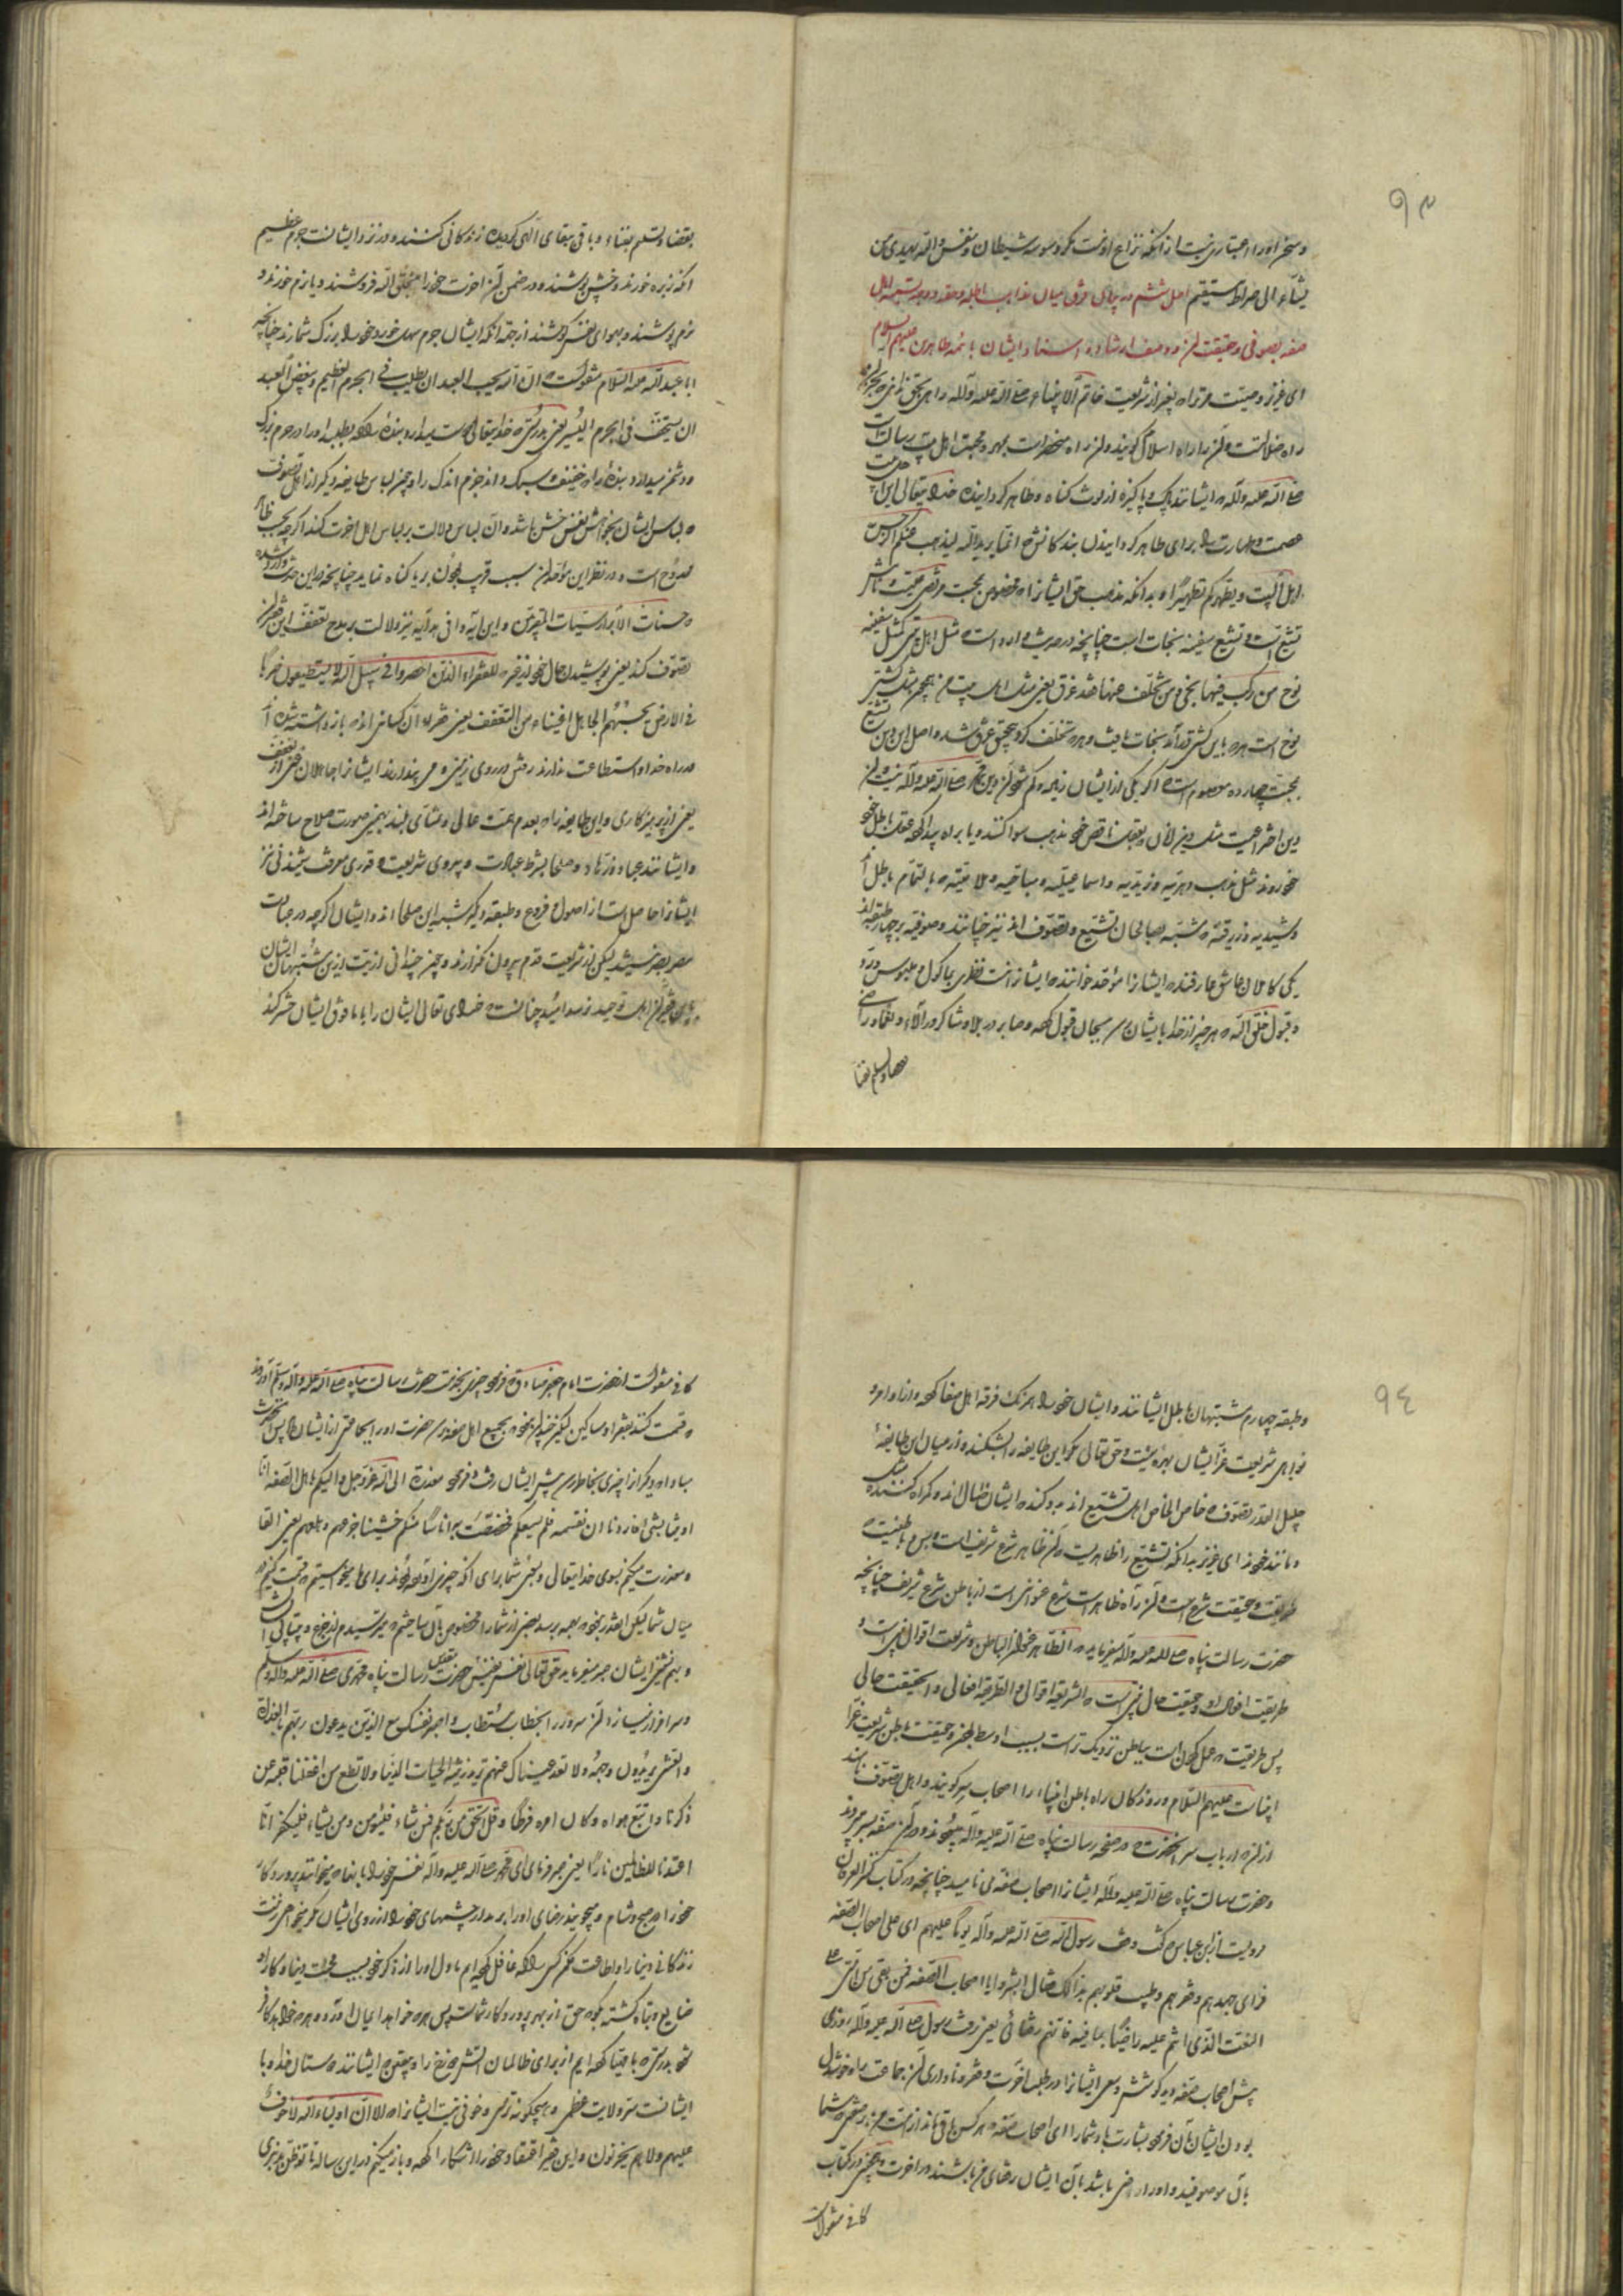 ۹۳
و سخن او را اعتباری نیست از آنکه نزاع او نیست مگر وسوسه شیطان و نفس و الله یهدی من
یشاء الی صراط مستقیم اصل ششم در بیان فرق میان مذاهب باطله و حقه و وجه تسمیه اهل
صفه بصوفی و حقیقت و صف ارشاد و اسناد ایشان بائمه طاهرین علیهم السلام
ای عزیز وصیت مر ترا که بغیر از شریعت خاتم الانبیاء صلی الله علیه وآله راهی بحق نیست
راه ضلالتست و آن را راه اسلام گویند و آن راه منحصر است بمهر و محبت اهل بیت رسالت
صلی الله علیه وآله که ایشانند پاک و پاکیزه از لوث گناه و طاهر گردانیده خدایتعالی این
عصمت و طهارت را برای طاهر گردانیدن بندگانش انما یرید الله لیذهب عنکم الرجس
اهل البیت و یطهرکم تطهیرا بدانکه مذهب حق ایشانراه مخصوص بمحبت
تشیع است و تشیع سفینه نجات است چنانچه در حدیث وارد است مثل اهل بیتی کمثل سفینة
نوح من رکب فیها نجی و من تخلف عنها فقد غرق یعنی مثل اهل بیت من همچو مثل کشتی
نوح است هر که باین کشتی در آمد نجات یافت و هر که تخلف کرد بتحقیق غرق شد و اصل این دین تشیع
محبت چهارده معصوم است اگر یکی از ایشان زیاده و کم شود آن دین محمد صلی الله علیه وآله نیست
دین اختراعیست مثل دین آنان که بعقل ناقص خود مذهب سوا کنند و یا براه پیدا کرده عقل باطل خود
خود روند مثل مذهب دهریه و زیدیه و اسماعیلیه و مباحیه و ملاحیته که بالتمام باطل اند
یکی کاملان عاشق عارفند که ایشانرا موحد خوانند که ایشانراست نظری بماکول و ملبوس و رد
و قبول خلق الله و هر چیز از خدا بایشان رسد بجان قبول کرده و صابر در بلا و شاکر در آلاء و نعماء و راضی
بقضا و تسلیم بفنا
بقضا و تسلیم بفناء و باقی ببقای الهی گردیده زندگانی کنند و در نزد ایشانست جرم عظیم
آنکه نان زبره خورند و خشن پوشند و در ضمن آن آخرت خود را بخلق الله فروشند و یا نرم خورند و
نرم پوشند و بهوای نفس کوشند از جهة آنکه ایشان جرم سهل خورد خود را بزرگ شمارند چنانچه
ابا عبدالله علیه السلام منقولست ان الله یحب العبد ان یطلب فی الجرم العظیم و یبغض العبد
ان یستخف فی الجرم الیسیر یعنی بدرستی که خدایتعالی دوست میدارد بنده را که بطلبد او را در جرم بزرگ
و دشمن میدارد بنده را که خفیف و سبک داند جرم اندک را و چون لباس طایفه دیگر از اهل تصوف
که لباس ایشان بخواهش نفس خشن باشد و آن لباس دلالت بر لباس اهل آخرت کند اگر چه بحسب ظاهر
ممدوح است و در نظر این موحدان سبب قرب بجوان بر یا گناه نماید چنانچه در این حدیث وارد شده
که حسنات الابرار سیئات المقربین و این آیه وافی هدایه نیز دلالت بر مدح تعفف این طریق
تصوف کند یعنی پوشیدن حال خود از فقر که للفقراء الذین احصروا فی سبیل الله لا یستطیعون ضربا
فی الارض یحسبهم الجاهل اغنیاء من التعفف یعنی فقر ایشان کسانی اند که باز داشته شده اند
در راه خدا و استطاعت ندارند رفتن در روی زمین و می پندارند ایشانرا جاهلان غنی از تعفف
یعنی از پرهیزکاری و این طایفه را بعدم همت عالی و نشأی بلند بهمین صورت صلاح ساخته اند
و ایشانند عباد و زهاد و صلحا بشرط عبادت و پیروی شریعت و قدری معرفت
ایشانرا حاصلست از اصول و فروع و طبقه دیگر مشبه باین صلحا اند و ایشان اگر چه در عبادت
مصر نرسیدند لیکن از شریعت قدم بیرون نگذارند و چون چندانی اذیت ازین متشبهان ایشان
باین فقیران اهل توحید نرسد امید چنانست که خدای تعالی ایشان را با مافوق ایشان حشر کند
۹٤
و طبقه چهارم متشبهان باطل ایشانند و ایشان خود را همرنگ فرقه اهل صفا کرده و از اوامر و
نواهی شریعت غرا ایشان بهره نیست و حق تعالی مگر این طایفه را بشکند که در میان این طایفه
جلیل القدر تصوف که خاص الخاص اهل تشیع اند بد کنند ایشان ضال اند و گمراه کننده
و مانند خود ای عزیز بدانکه تشیع را ظاهریست که آن ظاهر شرع شریف است و بس و باطنیست که
طریقت و حقیقت شرع است و آن راه ظاهر است شرع عنوانی است از باطن شرع شریف چنانچه
حضرت رسالت پناه صلی الله علیه وآله میفرماید که الظاهر عنوان الباطن و شریعت اقوال نبی است و
طریقت افعال او و حقیقت حال نبی است که الشریعة اقوالی و الطریقة افعالی و الحقیقة حالی
پس طریقت که عمل کردن است بباطن نزدیک تر است بسبب اوسط بودن و حقیقت باطن شریعت غرا
ابنیاست علیهم السلام و روندگان راه باطن انبیاء را اصحاب سر گویند و اهل تصوف نامند
از آنکه ارباب سر آنحضرت در صفه رسالت پناه صلی الله علیه وآله میبودند و در آن صفه بسر میبردند
و حضرت رسالت پناه صلی الله علیه وآله ایشانرا اصحاب صفه می نامید چنانچه در کتاب کنز العرفان
رویت از ابن عباس که گفت وقف رسول الله صلی الله علیه وآله یوما علیهم ای علی اصحاب الصفه
فرای جهدهم و فقرهم و طیب قلوبهم بذالک فقال ابشروا یا اصحاب الصفه فمن بقی من امتی علی
النعت الذی انتم علیه راضیا بما فیه فانهم رفقائی یعنی رفت رسول صلی الله علیه وآله روزی
پیش اصحاب صفه و دید کوشش و سعی ایشانرا در طلب آخرت و فقر و ناداری آن جماعت را و خوشدل
بودن ایشان بآن فرمود بشارت باد شما را ای اصحاب صفه هر کس باقی ماند از امت من بر صفتی که شما
بآن موصوفید و او راضی باشد بآن ایشان رفقای من باشند در آخرت و همچنین در کتاب
کافی منقولست
کافی منقولست از حضرت امام جعفر صادق که چیزی بخدمت حضرت رسالت پناه صلی الله علیه وآله وسلم آوردند
که قسمت کند بفقرا و مساکین لیکن چندان نبود که بجمیع اهل صفه رسد حضرت او را بجماعتی از ایشان داد پس آنحضرت
مبادا دیگرانرا چیزی بخاطر رسد پیش ایشان رفت و فرمود معذرة الی الله عز و جل و الیکم یا اهل الصفه انا
اوتینا بشئ فاردنا ان نقسمه فلم یسعکم فخصصت به اناسا منکم خشینا جزعهم و هلعهم یعنی التجا
و معذرت میکنم بسوی خدایتعالی و بسوی شما برای آنکه چیزی آورده بودند برای ما میخواستیم که قسمت کنیم
میان شما لیکن آنقدر نبود که بهمه برسد بعضی از شما را مخصوص بآن ساختیم که میترسیدم از جزع و بیتابی ایشان
و بهم نشینی ایشان خبر میفرماید حق تعالی نفس نفیس حضرت رسالت پناه محمدی صلی الله علیه وآله وسلم
و سرافراز میسازد آن سرور را بخطاب مستطاب واصبر نفسک مع الذین یدعون ربهم بالغداة
والعشی یریدون وجهه ولا تعد عیناک عنهم ترید زینة الحیات الدنیا ولا تطع من اغفلنا قلبه عن
ذکرنا واتبع هواه وکان امره فرطا و قل الحق من ربکم فمن شاء فلیؤمن ومن یشاء فلیکفر انا
اعتدنا للظالمین نارا یعنی صبر فرمای ای محمد صلی الله علیه وآله نفس خود را با آنها که میخوانند پروردگار
خود را در صبح و شام و میجویند رضای او را بر مدار چشمهای خود را از روی ایشان مگر میخواهی زینت
زندگانی دنیا را و اطاعت مکن کسی را که غافل کرده ایم ما دل او را از ذکر خود بسبب محبت دنیا و کار او
ضایع و تباه گشته بگو که حق از بهر پروردگار شماست پس هر که خواهد ایمان آورد و هر که خواهد کافر
شود بدرستی که ما مهیا کرده ایم از برای ظالمان آتش دوزخ را و بیقین که ایشانند دوستان خدا و با
ایشانست سر ولایت عظمی و هیچگونه ترس و خوفی نیست ایشانراه الا ان اولیاء الله لا خوف
علیهم ولا هم یحزنون و این فقیر اعتقاد خود را آشکار کرده و باز میکنم در این رساله تا توظن بد نبری